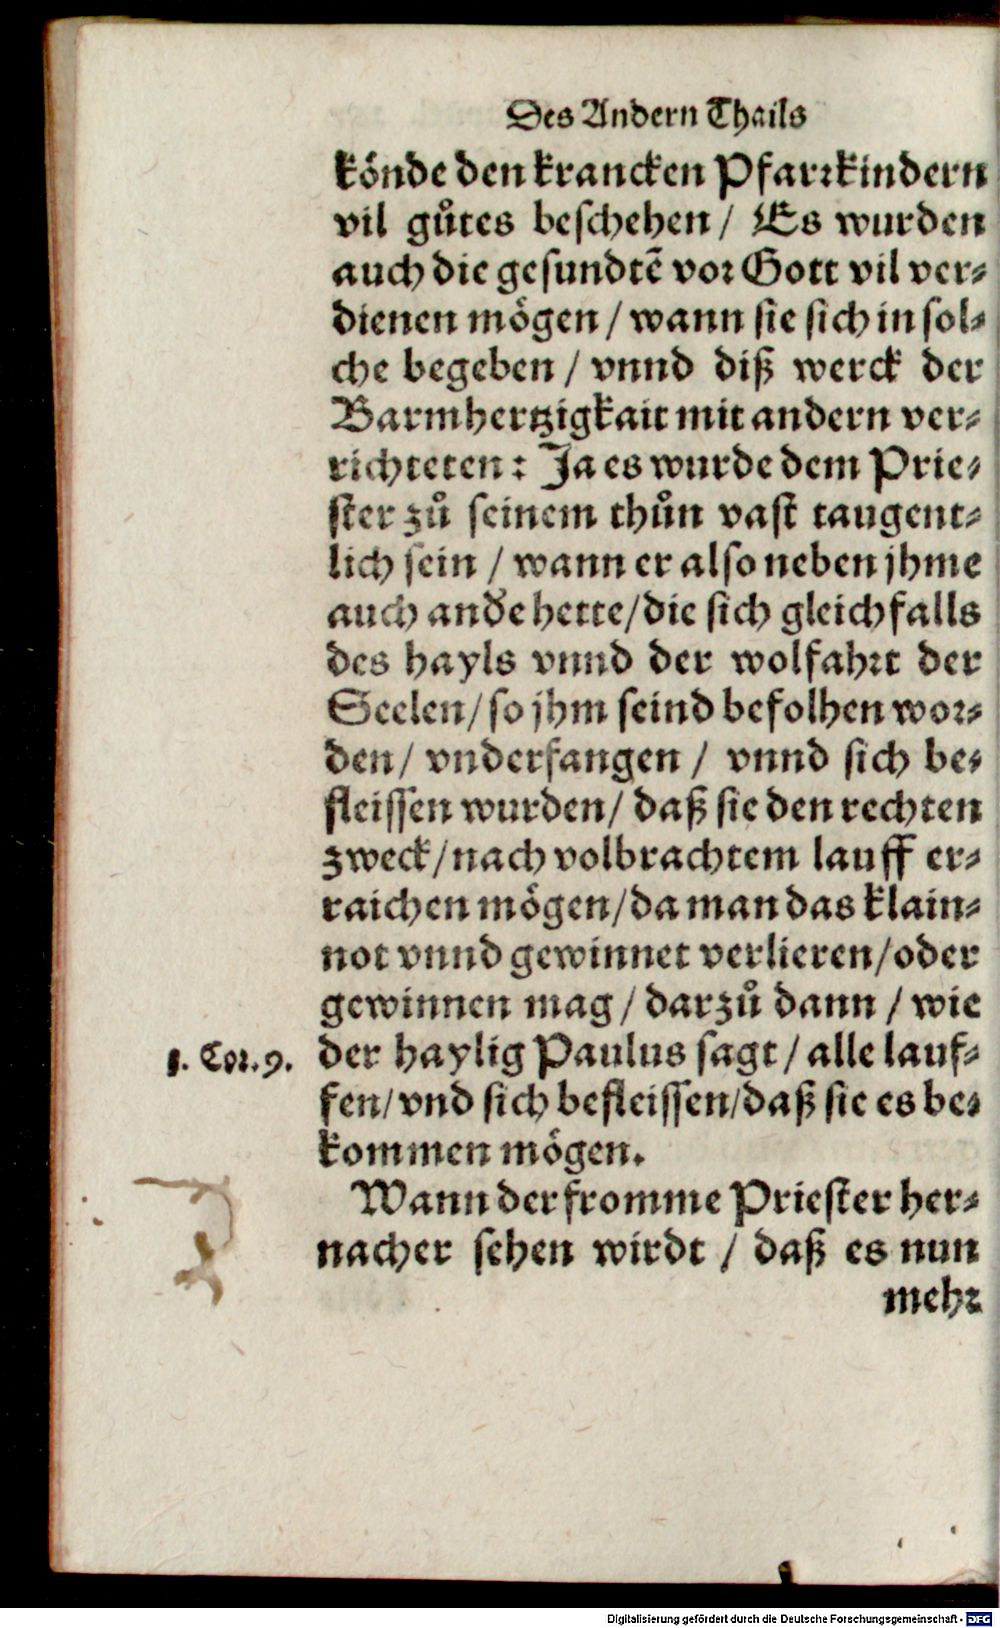 Des Andern Thails
könde den krancken Pfarꝛkindern
vil gůtes beschehen / Es wurden
auch die gesundtē voꝛ Gott vil ver⸗
dienen mögen / wann sie sich in sol⸗
che begeben / vnnd diß werck der
Barmhertzigkait mit andern ver⸗
richteten : Ja es wurde dem Prie⸗
ster zů seinem thůn vast taugent⸗
lich sein / wann er also neben jhme
auch andͤe hette / die sich gleichfalls
des hayls vnnd der wolfahꝛt der
Seelen / so jhm seind befolhen woꝛ⸗
den / vnderfangen / vnnd sich be⸗
fleissen wurden / daß sie den rechten
zweck / nach volbrachtem lauff er⸗
raichen mögen / da man das klain⸗
not vnnd gewinnet verlieren / oder
gewinnen mag / darzů dann / wie
1. Coꝛ. 9. der haylig Paulus sagt / alle lauf⸗
fen / vnd sich befleissen / daß sie es be⸗
kommen mögen.
Wann der fromme Priester her⸗
nacher sehen wirdt / daß es nun
mehꝛ
Digitalisierung gefördert durch die Deutsche Forschungsgemeinschaft - DFG